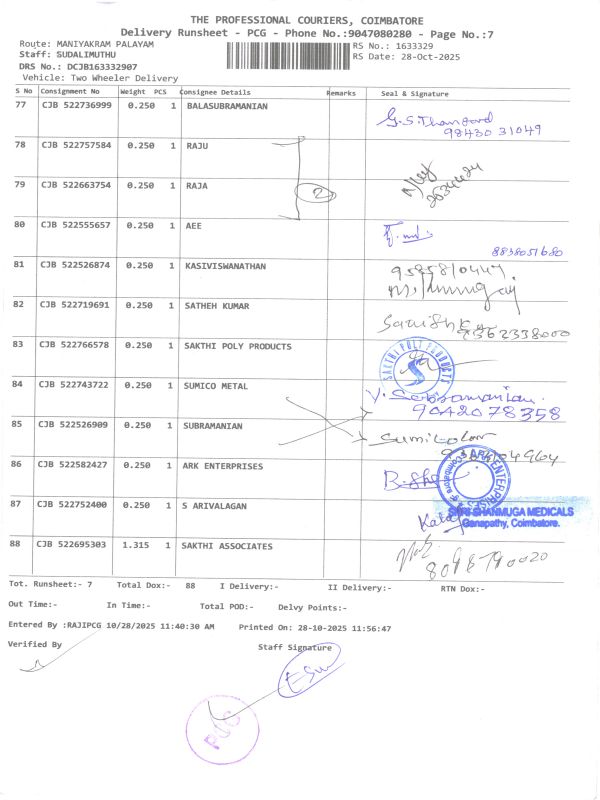 THE PROFESSIONAL COURIERS, COIMBATORE
Delivery Runsheet - PCG - Phone No.:9047080280 - Page No.:7
Route: MANIYAKRAM PALAYAM RS No.: 1633329
Staff: SUDALIMUTHU RS Date: 28-Oct-2025
DRS No.: DCJB163332907
Vehicle: Two Wheeler Delivery
S No Consignment No Weight PCS Consignee Details Remarks Seal & Signature
77 CJB 522736999 0.250 1 BALASUBRAMANIAN G.S.Thangard
98430 31049
78 CJB 522757584 0.250 1 RAJU
79 CJB 522663754 0.250 1 RAJA 2
80 CJB 522555657 0.250 1 AEE
8838051680
81 CJB 522526874 0.250 1 KASIVISWANATHAN
82 CJB 522719691 0.250 1 SATHEH KUMAR
9362338000
83 CJB 522766578 0.250 1 SAKTHI POLY PRODUCTS SAKTHI POLY PRODUCTS
84 CJB 522743722 0.250 1 SUMICO METAL
9042078358
85 CJB 522526909 0.250 1 SUBRAMANIAN
86 CJB 522582427 0.250 1 ARK ENTERPRISES ARK ENTERPRISES
87 CJB 522752400 0.250 1 S ARIVALAGAN SHRI SHANMUGA MEDICALS
Ganapathy, Coimbatore.
88 CJB 522695303 1.315 1 SAKTHI ASSOCIATES
8098790020
Tot. Runsheet:- 7 Total Dox:- 88 I Delivery:- II Delivery:- RTN Dox:-
Out Time:- In Time:- Total POD:- Delvy Points:-
Entered By :RAJIPCG 10/28/2025 11:40:30 AM Printed On: 28-10-2025 11:56:47
Verified By Staff Signature
PCG